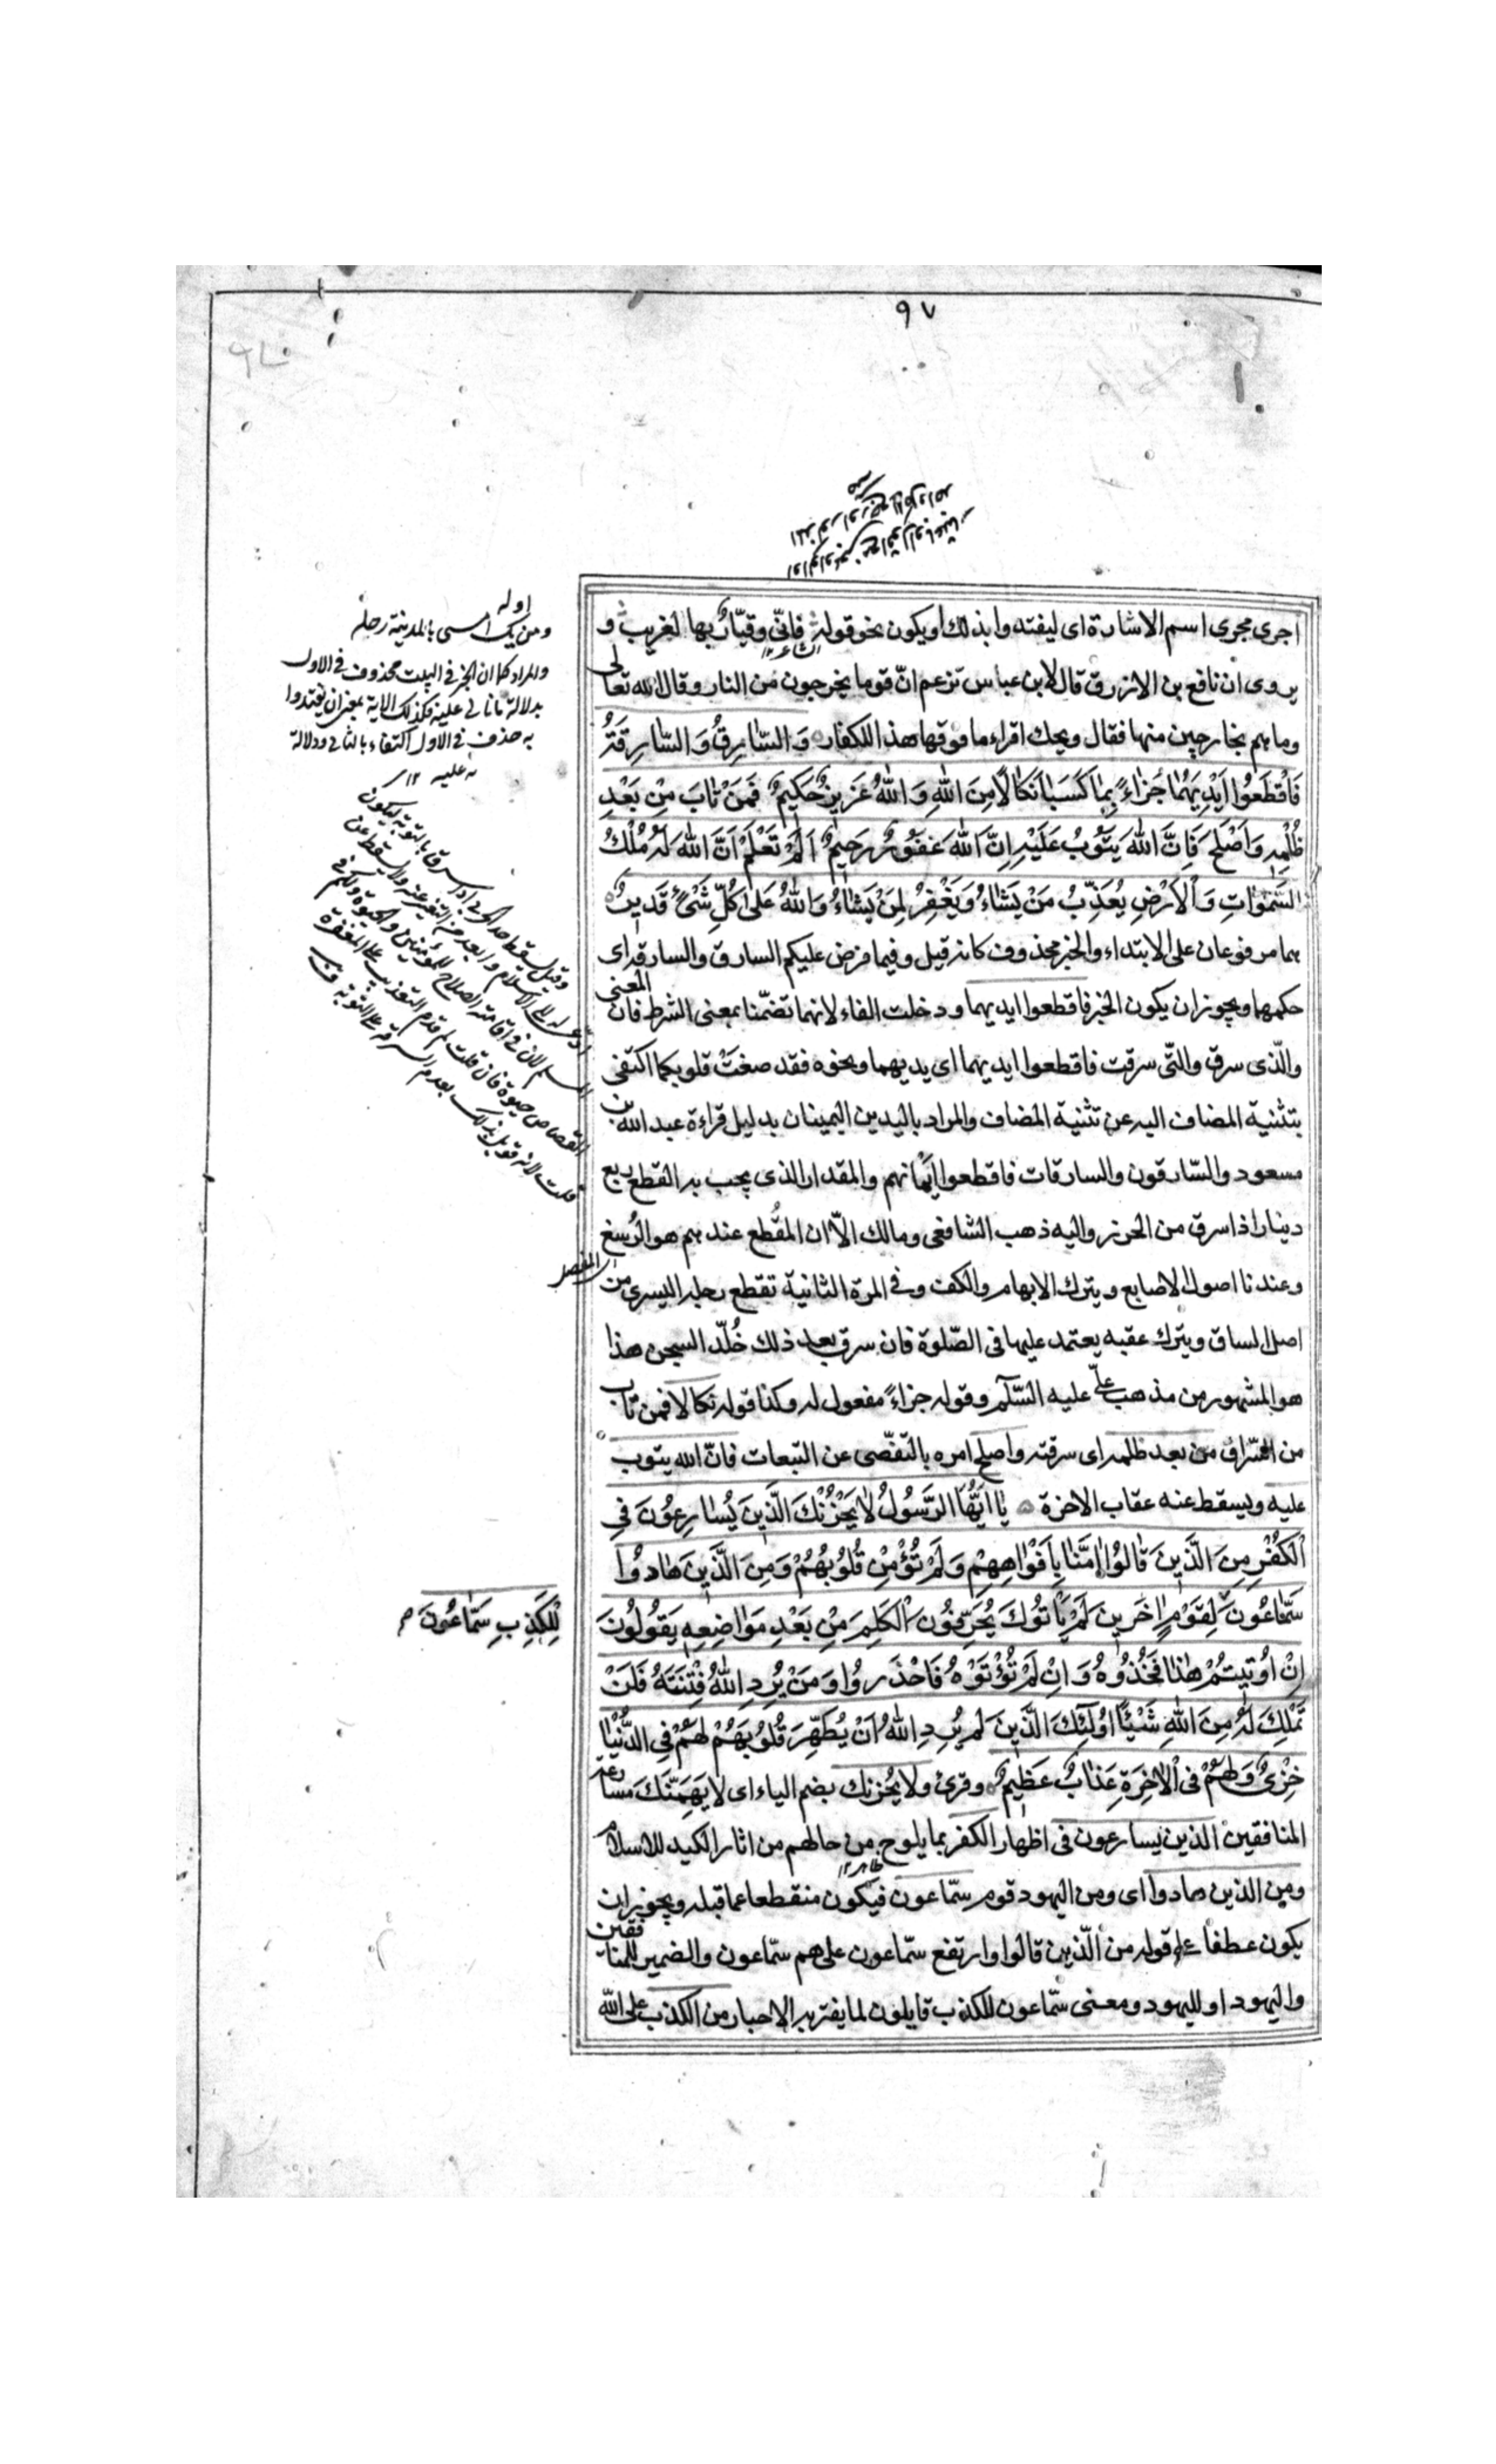 ٩٧
اجرى مجرى اسم الاشارة اى ليفتدوا بذلك او يكون نحو قوله فانّى وقيّارٌ بها لغريب و
يروى ان نافع بن الازرق قال لابن عباس تزعم انّ قوما يخرجون من النار وقال الله تعالى
وما هم بخارجين منها فقال ويحك اقراء ما فوقها هذا للكفار وَالسَّارِقُ وَالسَّارِقَةُ
فَاقْطَعُوا اَيْدِيَهُمَا جَزَاءً بِمَا كَسَبَا نَكَالًا مِنَ اللهِ وَاللهُ عَزِيزٌ حَكِيمٌ فَمَنْ تَابَ مِنْ بَعْدِ
ظُلْمِهِ وَاَصْلَحَ فَاِنَّ اللهَ يَتُوبُ عَلَيْهِ اِنَّ اللهَ غَفُورٌ رَحِيمٌ اَلَمْ تَعْلَمْ اَنَّ اللهَ لَهُ مُلْكُ
السَّمٰوَاتِ وَالْاَرْضِ يُعَذِّبُ مَنْ يَشَاءُ وَيَغْفِرُ لِمَنْ يَشَاءُ وَاللهُ عَلٰى كُلِّ شَىْءٍ قَدِيرٌ
هما مرفوعان على الابتداء والخبر محذوف كانه قيل وفيما فرض عليكم السارق والسارقة اى
حكمهما ويجوز ان يكون الخبر فاقطعوا ايديهما ودخلت الفاء لانهما تضمّنا بمعنى الشرط فان المعنى
والّذى سرق والتّى سرقت فاقطعوا ايديهما اى يديهما ونحوه فقد صغتْ قلوبكما اكتفى
بتثنية المضاف اليه عن تثنية المضاف والمراد باليدين اليمينان بدليل قراءة عبد الله بن
مسعود والسّارقون والسارقات فاقطعوا ايمانهم والمقدار الذى يجب به القطع ربع
دينار اذا سرق من الحرز واليه ذهب الشافعى ومالك الاّ ان المقطع عندهم هو الرُسغ
اى المفصل
وعندنا اصول الاصابع ويترك الابهام والكف وفى المرة الثانية تقطع رجله اليسرى من
اصل الساق ويترك عقبه يعتمد عليها فى الصّلوة فان سرق بعد ذلك خُلّد السجن هذا
هو المشهور من مذهب علىّ عليه السّلم وقوله جزاءً مفعول له وكذا قوله نكالا فمن تاب
من السّراق من بعد ظلمه اى سرقته واصلح امره بالتفصّى عن التبعات فانّ الله يتوب
عليه ويسقط عنه عقاب الاخرة يَا اَيُّهَا الرَّسُولُ لَا يَحْزُنْكَ الَّذِينَ يُسَارِعُونَ فِى
الْكُفْرِ مِنَ الَّذِينَ قَالُوا اٰمَنَّا بِاَفْوَاهِهِمْ وَلَمْ تُؤْمِنْ قُلُوبُهُمْ وَمِنَ الَّذِينَ هَادُوا
لِلْكَذِبِ سَمَّاعُونَ
سَمَّاعُونَ لِقَوْمٍ اٰخَرِينَ لَمْ يَأْتُوكَ يُحَرِّفُونَ الْكَلِمَ مِنْ بَعْدِ مَوَاضِعِهِ يَقُولُونَ
اِنْ اُوتِيتُمْ هٰذَا فَخُذُوهُ وَاِنْ لَمْ تُؤْتَوْهُ فَاحْذَرُوا وَمَنْ يُرِدِ اللهُ فِتْنَتَهُ فَلَنْ
تَمْلِكَ لَهُ مِنَ اللهِ شَيْئًا اُولٰئِكَ الَّذِينَ لَمْ يُرِدِ اللهُ اَنْ يُطَهِّرَ قُلُوبَهُمْ لَهُمْ فِى الدُّنْيَا
خِزْىٌ وَلَهُمْ فِى الْاٰخِرَةِ عَذَابٌ عَظِيمٌ وقرئ ولا يُحزنك بضم الياء اى لا يَهِمَّنّكَ مسارعة
المنافقين الذين يسارعون فى اظهار الكفر بما يلوح من حالهم من اثار الكيد للاسلام
ومن الذين هادوا اى ومن اليهود قوم سمّاعون فيكون منقطعا عما قبله ويجوز ان
يكون عطفا على قوله من الّذين قالوا وارتفع سمّاعون على هم سمّاعون والضمير للمنافقين
واليهود او لليهود ومعنى سمّاعون للكذب قايلون لما يفتريه الاحبار من الكذب على الله
اوله
ومن يك امسى بالمدينة رحله
والمراد كما ان الخبر فى البيت محذوف فى الاول
بدلالة الثانى عليه فكذلك الاية بمعنى ان يفتدوا
به حذف فى الاول اكتفاء بالثانى ودلالة
عليه ١٢